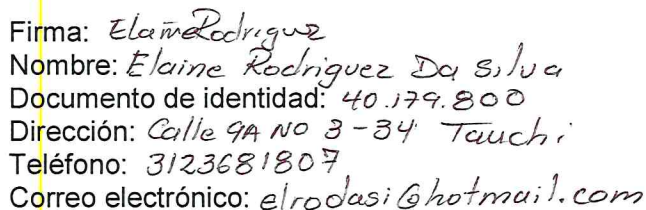 Firma: Elaine Rodriguez
Nombre: Elaine Rodriguez Da Silva
Documento de identidad: 40.179.800
Dirección: Calle 9A NO 3-34 Tauchi
Teléfono: 3123681807
Correo electrónico: elrodasi@hotmail.com